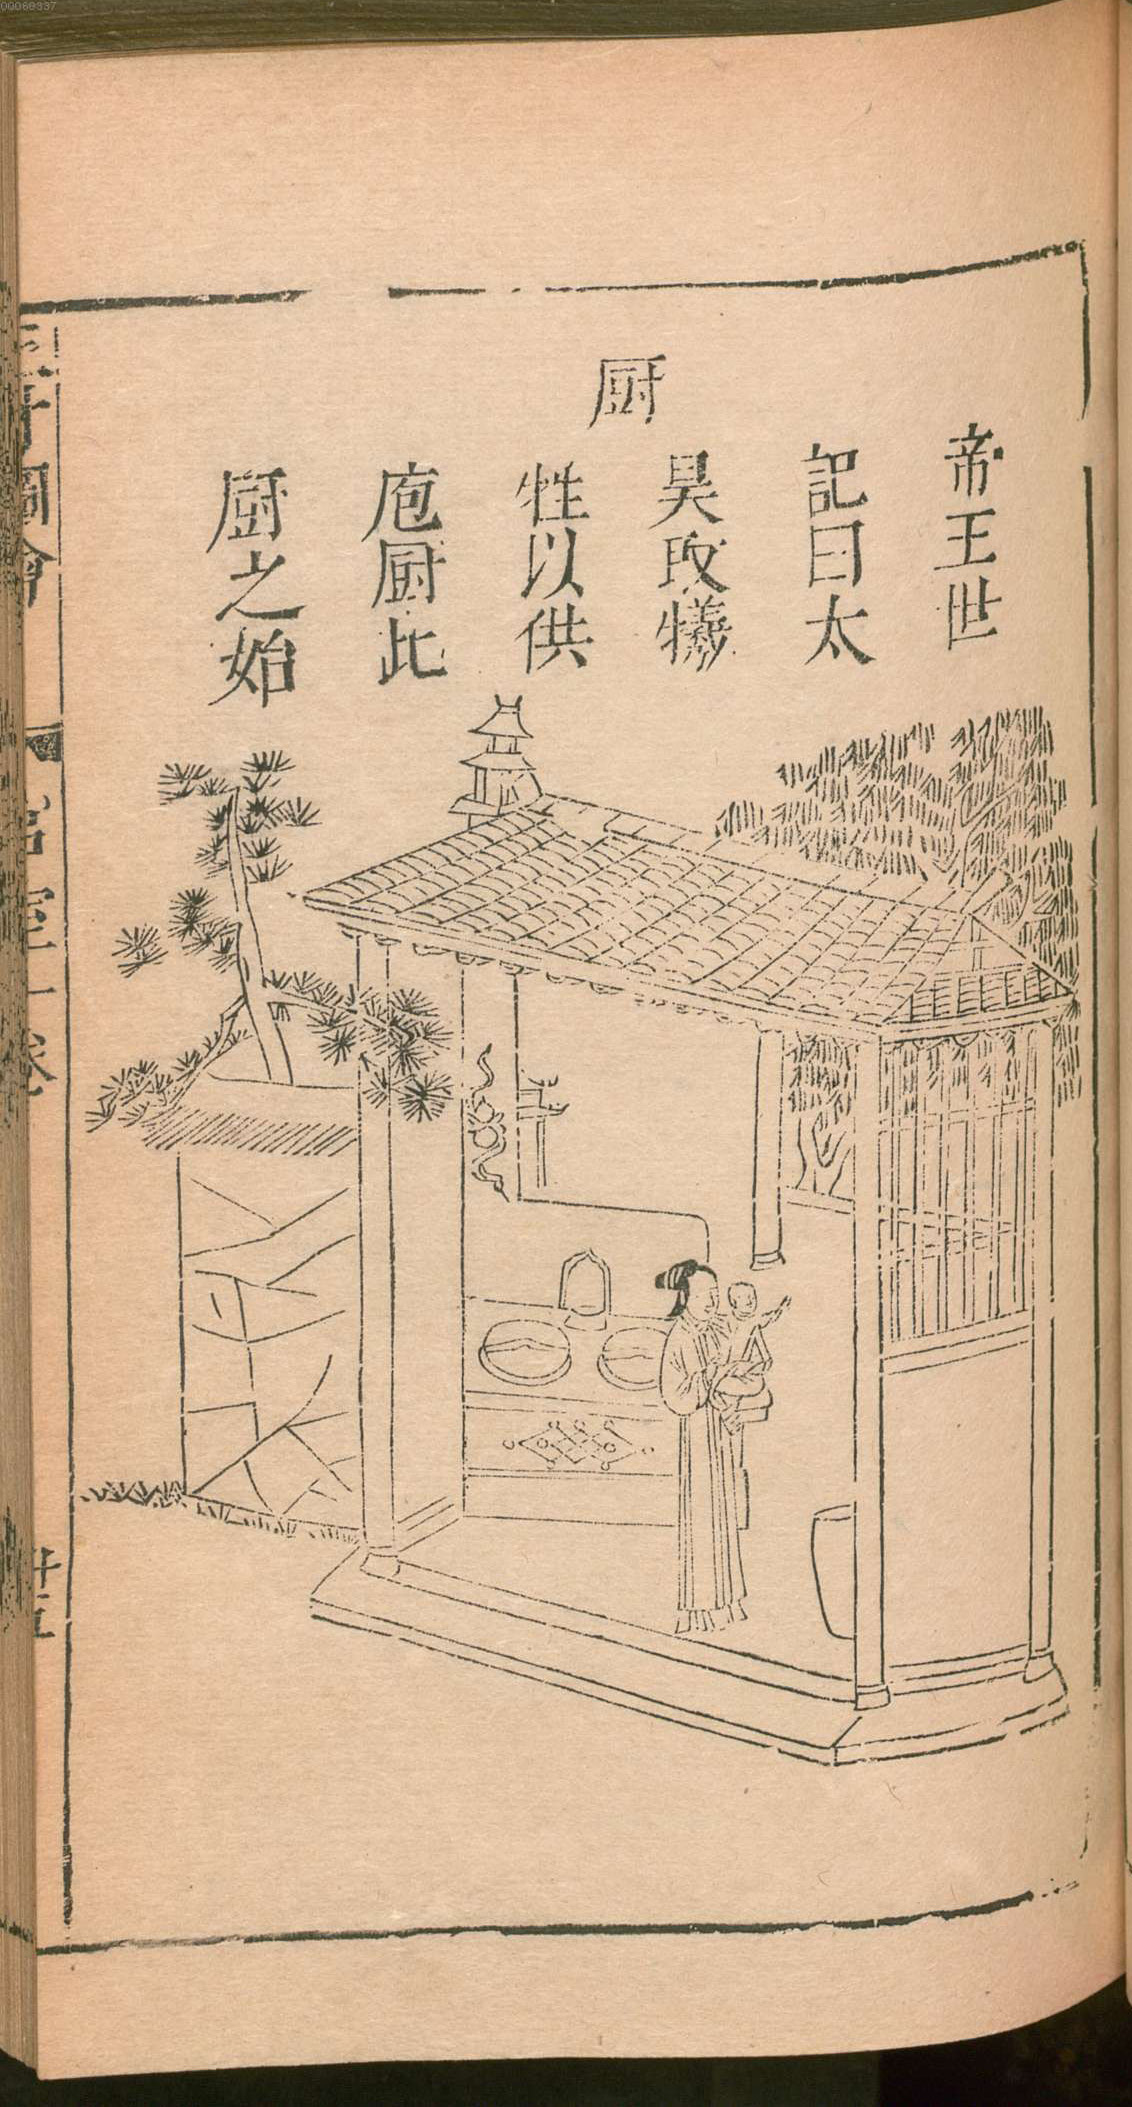 00068337
厨
帝王世
記曰太
昊取犧
牲以供
庖厨此
厨之始
才圖會
宮室一卷
廿五